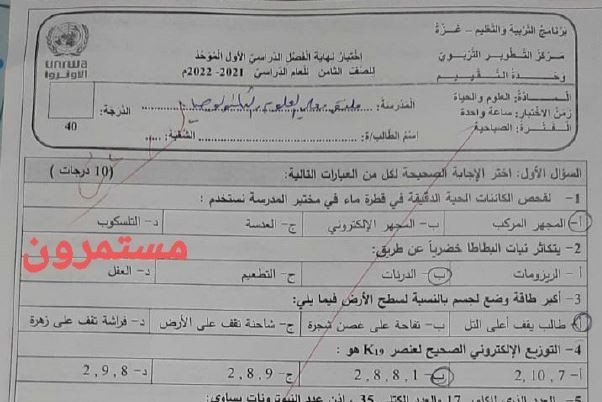 برنامج التربية والتعليم - غزة
مركز التطوير التربوي
وحدة التقييم
المادة: العلوم والحياة
زمن الاختبار: ساعة واحدة
الفترة: الصباحية
اختبار نهاية الفصل الدراسي الأول الموحد
للصف الثامن للعام الدراسي 2021- 2022م
المدرسة:
اسم الطالب/ة: الشعبة:
unrwa
الأونروا
الدرجة:
40
السؤال الأول: اختر الإجابة الصحيحة لكل من العبارات التالية: (10 درجات)
1- لفحص الكائنات الحية الدقيقة في قطرة ماء في مختبر المدرسة نستخدم :
أ- المجهر المركب ب- المجهر الإلكتروني ج- العدسة د- التلسكوب
مستمرون
2- يتكاثر نبات البطاطا خضرياً عن طريق:
أ- الريزومات ب- الدرنات ج- التطعيم د- العقل
3- أكبر طاقة وضع لجسم بالنسبة لسطح الأرض فيما يلي:
أ- طالب يقف أعلى التل ب- تفاحة على غصن شجرة ج- شاحنة تقف على الأرض د- فراشة تقف على زهرة
4- التوزيع الإلكتروني الصحيح لعنصر K19 هو :
أ- 2,10,7 ب- 2,8,8,1 ج- 2,8,9 د- 2,9,8
5- العدد الذري للكلور 17 والعدد الكتلي 35 ، إذن عدد النيوترونات يساوي: